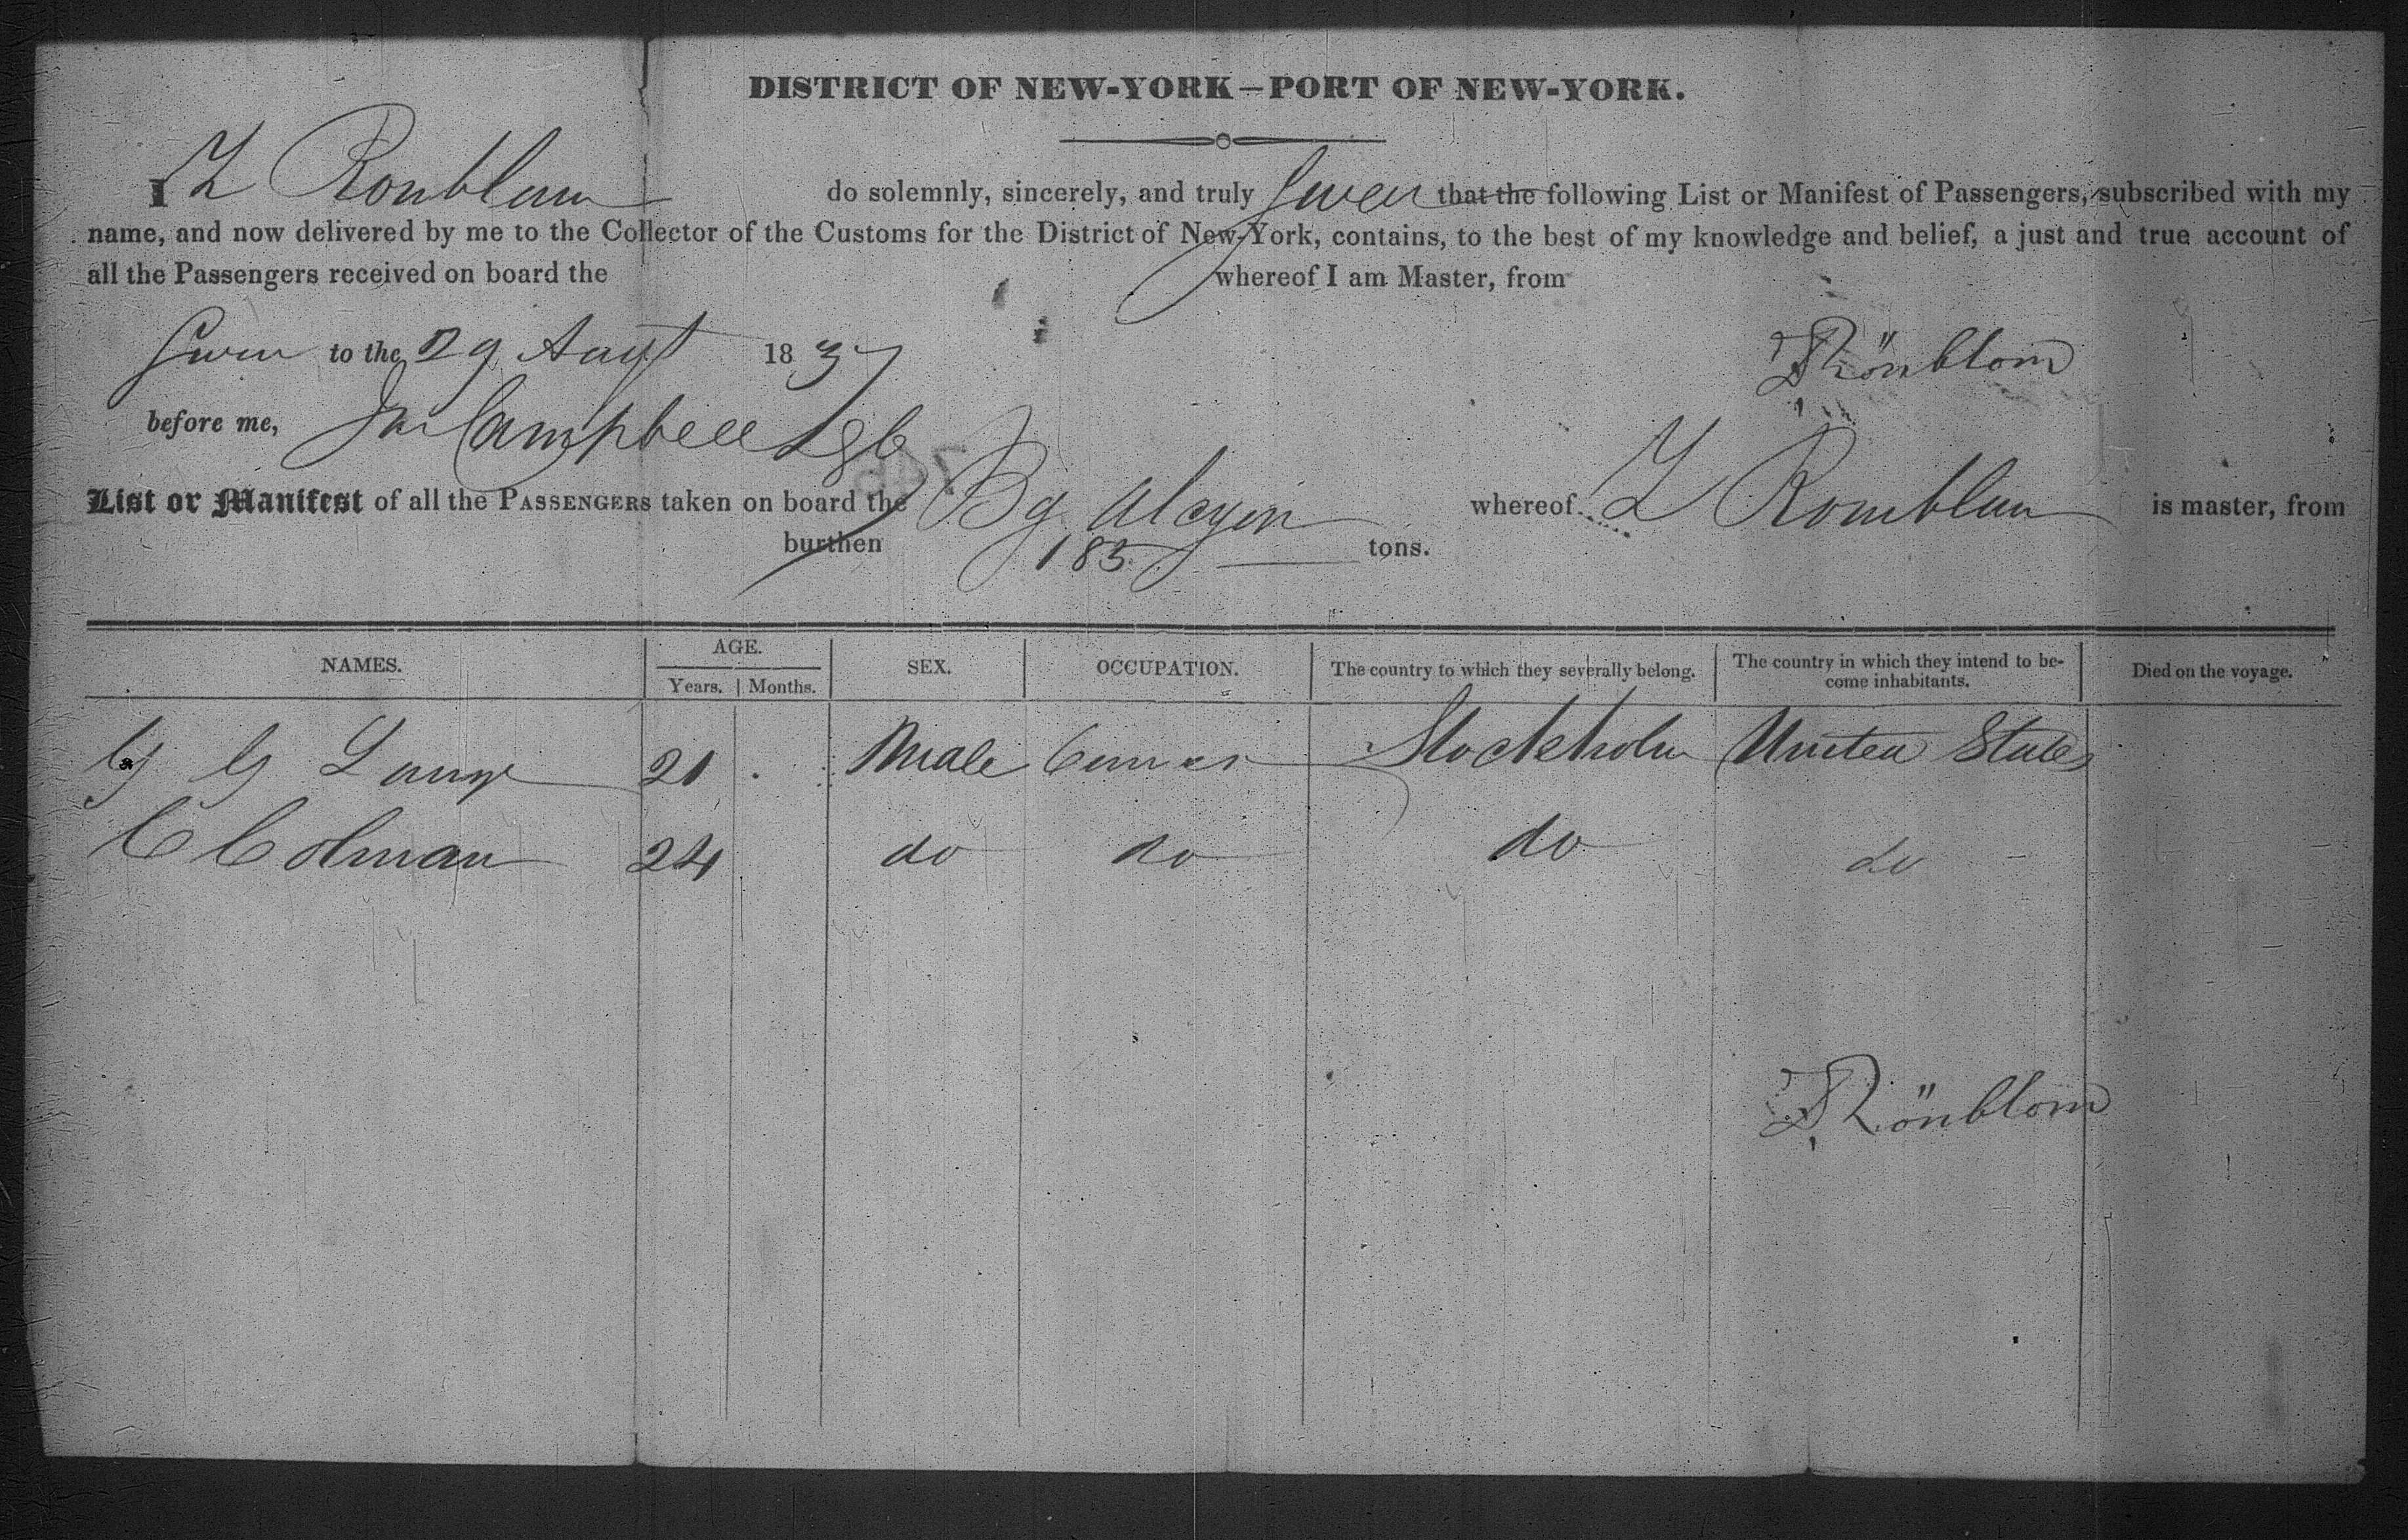 DISTRICT OF NEW-YORK—PORT OF NEW-YORK.
I Z Ronblum do solemnly, sincerely, and truly Swear that the following List or Manifest of Passengers, subscribed with my
name, and now delivered by me to the Collector of the Customs for the District of New-York, contains, to the best of my knowledge and belief, a just and true account of
all the Passengers received on board the whereof I am Master, from
to the 29 Augt 1837
Rönblom
before me, Campbell
List or Manifest of all the PASSENGERS taken on board the Bg Alcyon whereof Z Romblun is master, from
burthen 185 tons.
NAMES. AGE. SEX. OCCUPATION. The country to which they severally belong. The country in which they intend to be-
come inhabitants. Died on the voyage.
Years. Months.
G G Lange 21 Male Stockholm United States
C Colman 24 do do do do
Rönblom